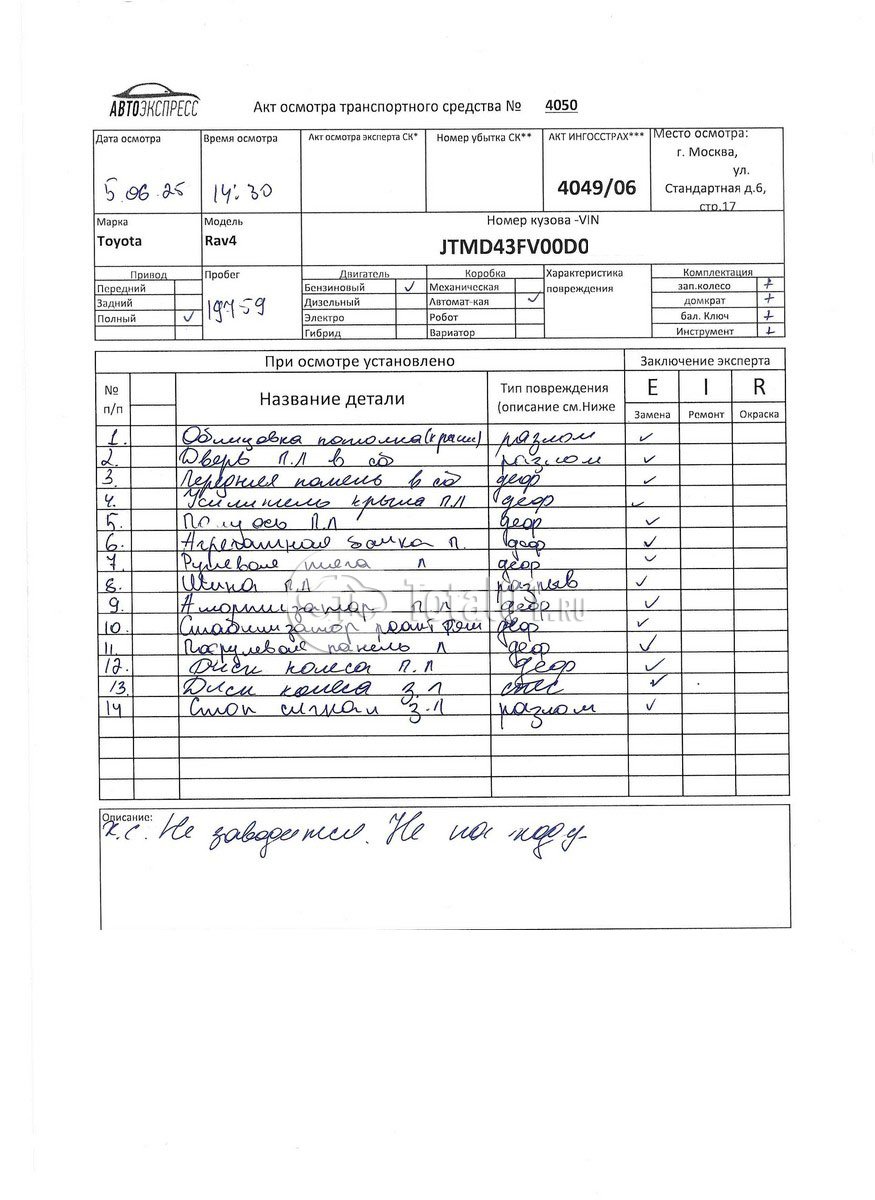 АВТОЭКСПРЕСС
Акт осмотра транспортного средства № 4050
Дата осмотра
5.06.25
Время осмотра
14:30
Акт осмотра эксперта СК*
Номер убытка СК**
АКТ ИНГОССТРАХ***
4049/06
Место осмотра:
г. Москва,
ул.
Стандартная д.6,
стр.17
Марка
Toyota
Модель
Rav4
Номер кузова -VIN
JTMD43FV00D0
Привод
Передний
Задний
Полный ✓
Пробег
19759
Двигатель
Бензиновый ✓
Дизельный
Электро
Гибрид
Коробка
Механическая
Автомат-кая ✓
Робот
Вариатор
Характеристика
повреждения
Комплектация
зап.колесо +
домкрат +
бал. Ключ +
Инструмент +
При осмотре установлено
Заключение эксперта
№
п/п
Название детали
Тип повреждения
(описание см.Ниже
E I R
Замена Ремонт Окраска
1. Облицовка потолка (крыши) разлом ✓
2. Дверь П.Л в сб разлом ✓
3. Передняя панель в сб деф ✓
4. Усилитель крыла П.Л деф ✓
5. Полуось П.Л деф ✓
6. Агрегатная балка П. деф ✓
7. Рулевая тяга Л деф ✓
8. Шина П.Л разрыв ✓
9. Амортизатор П.Л деф ✓
10. Стабилизатор деф ✓
11. Подрулевая панель Л деф ✓
12. Диск колеса П.Л деф ✓
13. Диск колеса З.Л ✓
14 Стоп сигнал З.Л разлом ✓
Total01.RU
Описание:
Х.С. Не заводится. Не на ходу.